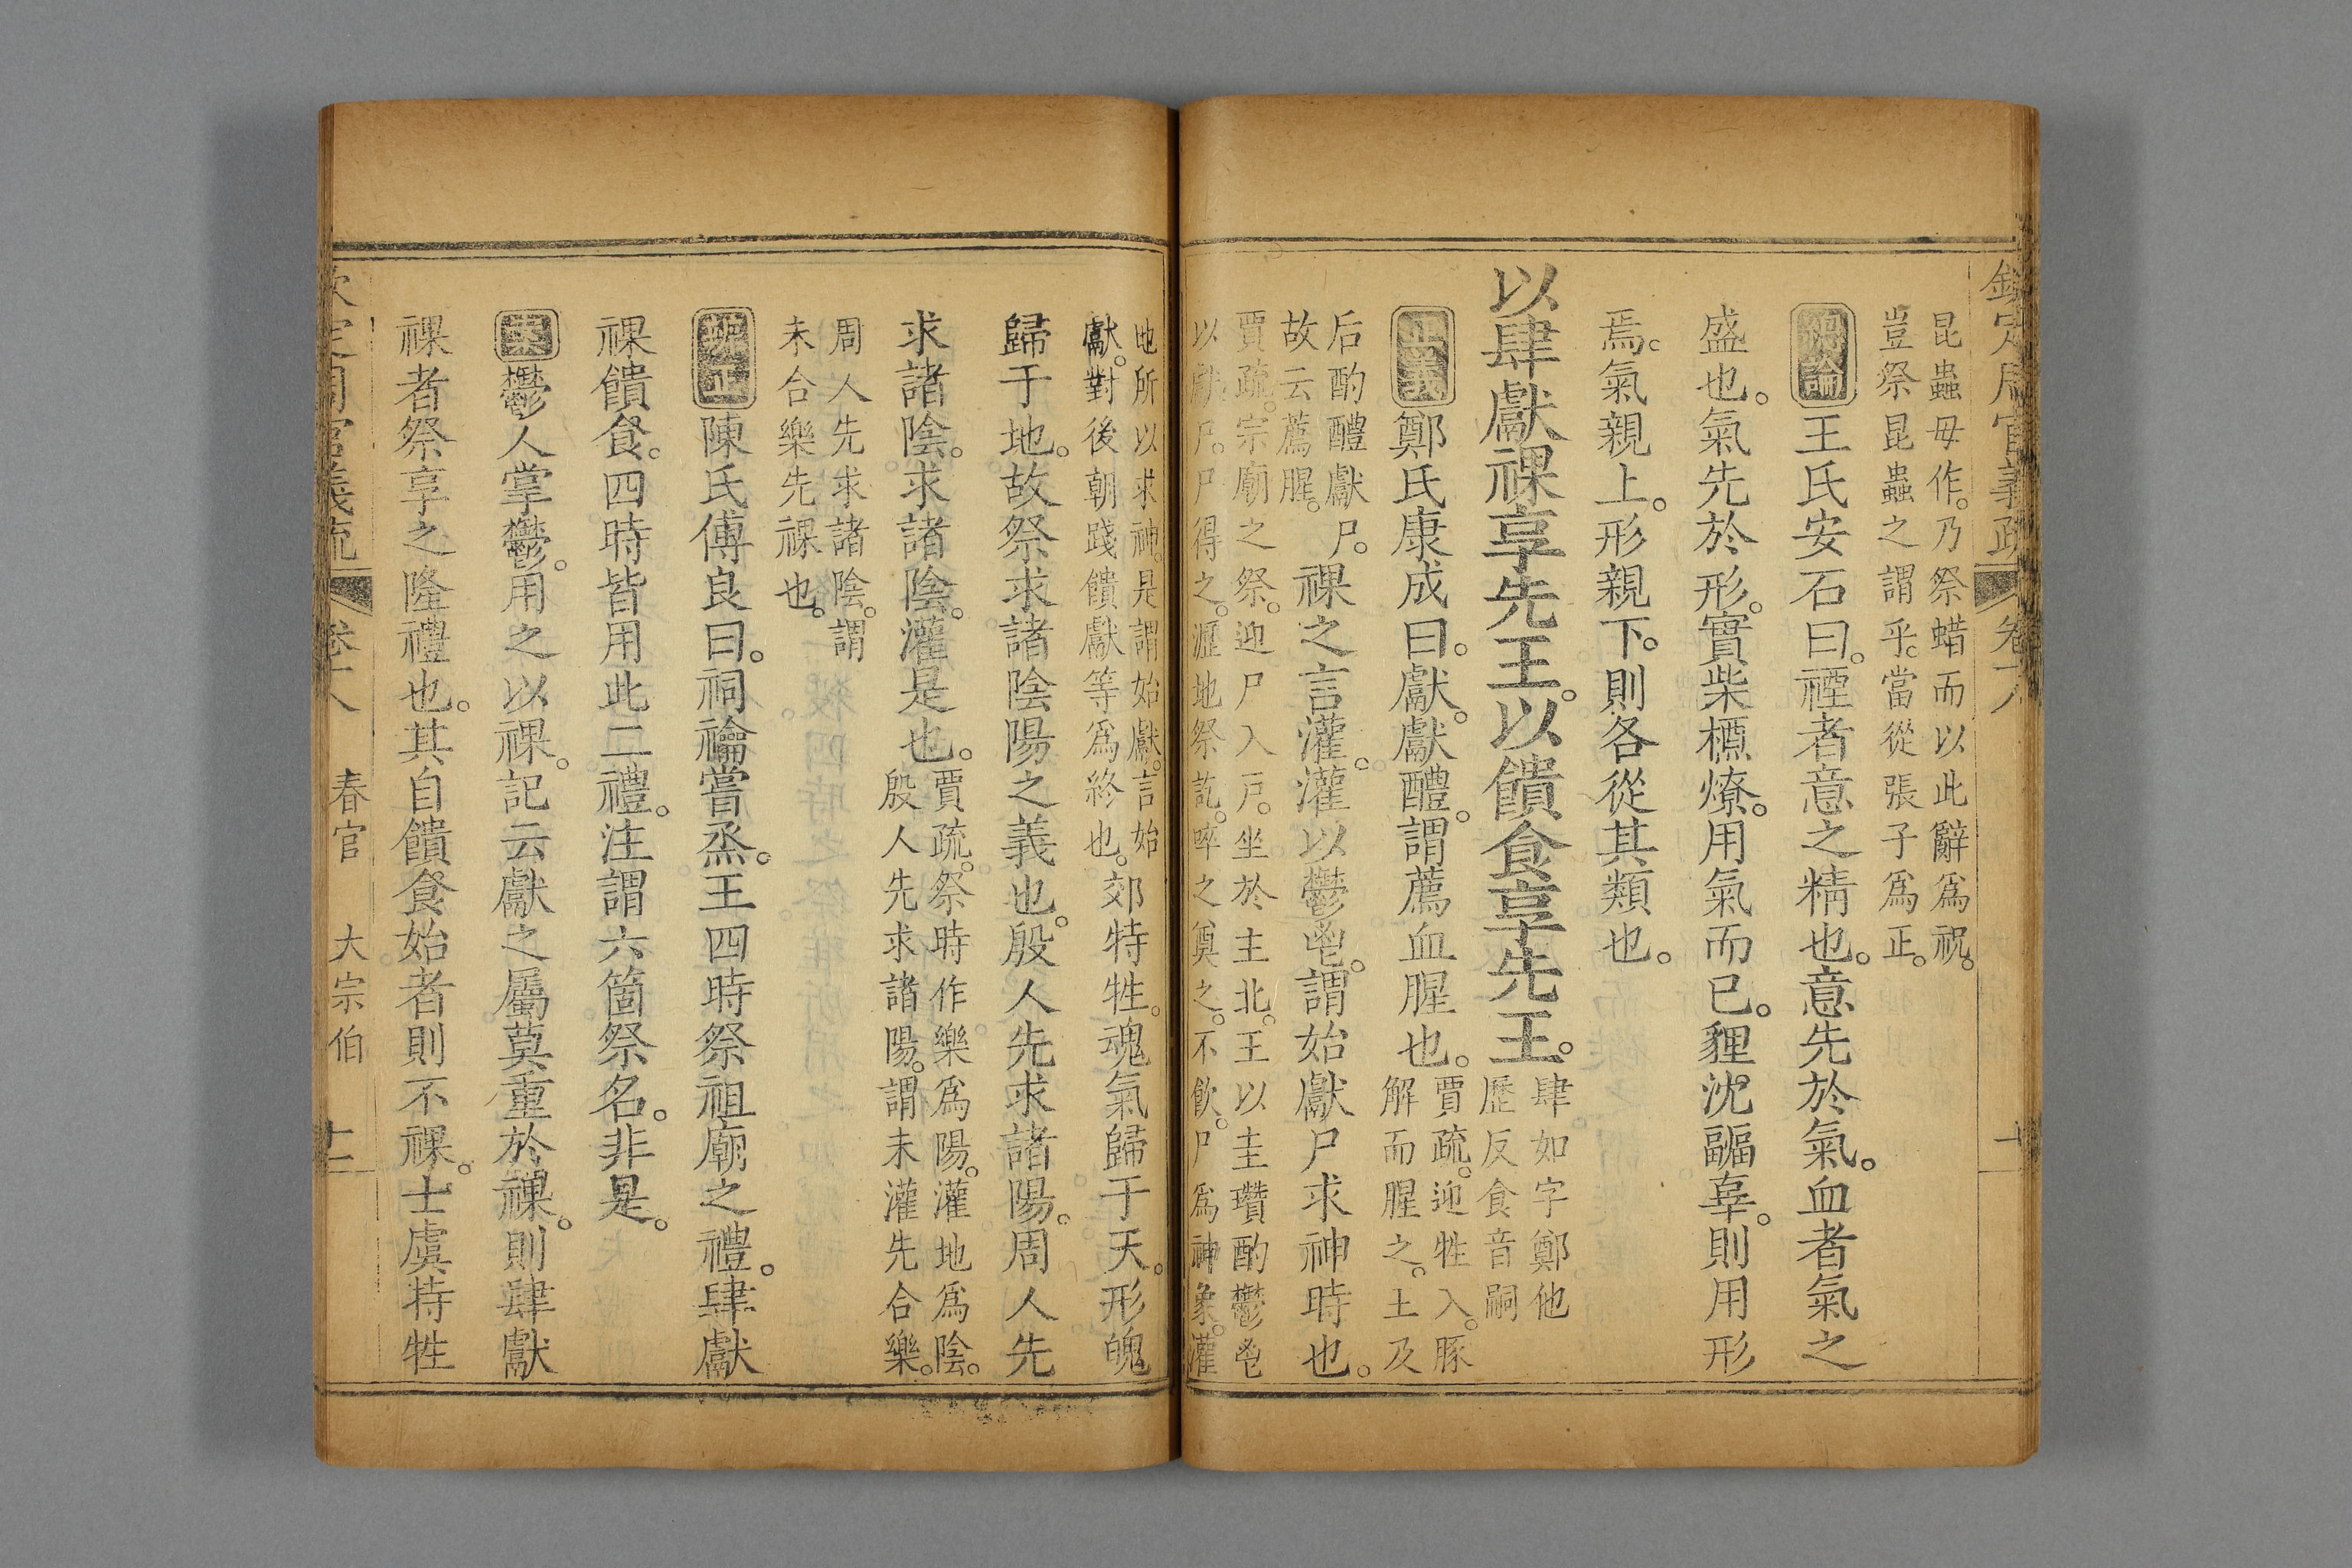 欽定周官義疏 卷十八
昆蟲毋作。乃祭蜡而以此辭爲祝。
豈祭昆蟲之謂乎。當從張子爲正。
總論王氏安石曰。禋者意之精也。意先於氣。血者氣之
盛也。氣先於形。實柴槱燎。用氣而已。貍沈疈辜。則用形
焉。氣親上。形親下。則各從其類也。
以肆獻祼享先王。以饋食享先王。
肆如字鄭他
歷反食音嗣
正義鄭氏康成曰。獻。獻醴。謂薦血腥也。
賈疏。迎牲入。豚
解而腥之。王及
后酌醴獻尸。
故云薦腥。
祼之言灌。灌以鬱鬯。謂始獻尸求神時也。
賈疏。宗廟之祭。迎尸入戶。坐於主北。王以圭瓚酌鬱鬯
以獻尸。尸得之。瀝地祭訖。啐之奠之。不飲。尸爲神象。灌
地所以求神。是謂始獻。言始
獻。對後朝踐饋獻等爲終也。
郊特牲。魂氣歸于天。形魄
歸于地。故祭求諸陰陽之義也。殷人先求諸陽。周人先
求諸陰。求諸陰。灌是也。
賈疏。祭時作樂爲陽。灌地爲陰。
殷人先求諸陽。謂未灌先合樂。
周人先求諸陰。謂
未合樂先祼也。
辨正陳氏傅良曰。祠禴嘗烝。王四時祭祖廟之禮。肆獻
祼饋食。四時皆用此二禮。注謂六箇祭名。非是。
案鬱人掌鬱。用之以祼。記云獻之屬莫重於祼。則肆獻
祼者祭享之隆禮也。其自饋食始者則不祼。士虞特牲
欽定周官義疏 卷十八 春官 大宗伯 十二